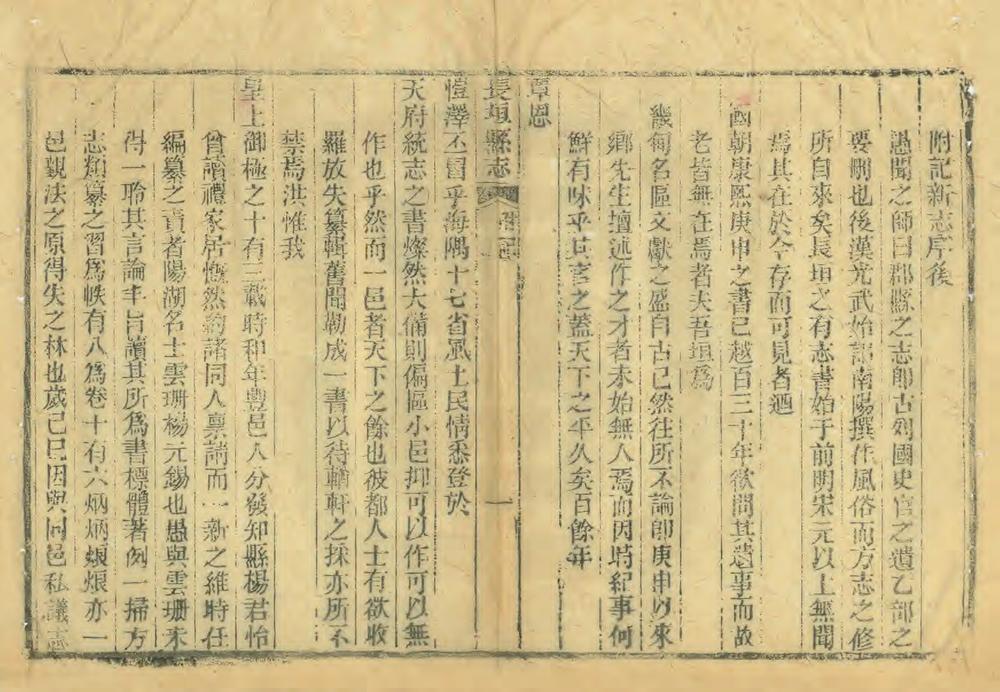 附記新志序後
愚聞之師曰郡縣之志即古列國史官之遺乙部之
要刪也後漢光武始詔南陽撰作風俗而方志之修
所自來矣長垣之有志書始于前明宋元以上無聞
焉其在於今存而可見者廼
國朝康熙庚申之書已越百三十年欲問其遺事而故
老皆無在焉者夫吾垣為
畿甸名區文獻之盛自古已然往所不論即庚申以來
鄉先生擅述作之才者未始無人焉而因時紀事何
鮮有味乎其言之蓋天下之平久矣百餘年
覃恩
長垣縣志
一
愷澤丕冒乎海隅十七省風土民情悉登於
天府統志之書燦然大備則偏區小邑抑可以作可以無
作也乎然而一邑者天下之餘也彼都人士有欲收
羅放失纂輯舊聞勒成一書以待輶軒之採亦所不
禁焉洪惟我
皇上御極之十有三載時和年豐邑人分發知縣楊君怡
曾讀禮家居慨然約諸同人稟請而一新之維時任
編纂之責者陽湖名士雲珊楊元錫也愚與雲珊未
得一聆其言論丰旨讀其所為書標體著例一掃方
志類纂之習為帙有八為卷十有六炳炳烺烺亦一
邑覲法之原得失之林也歲己巳因與同邑私議志